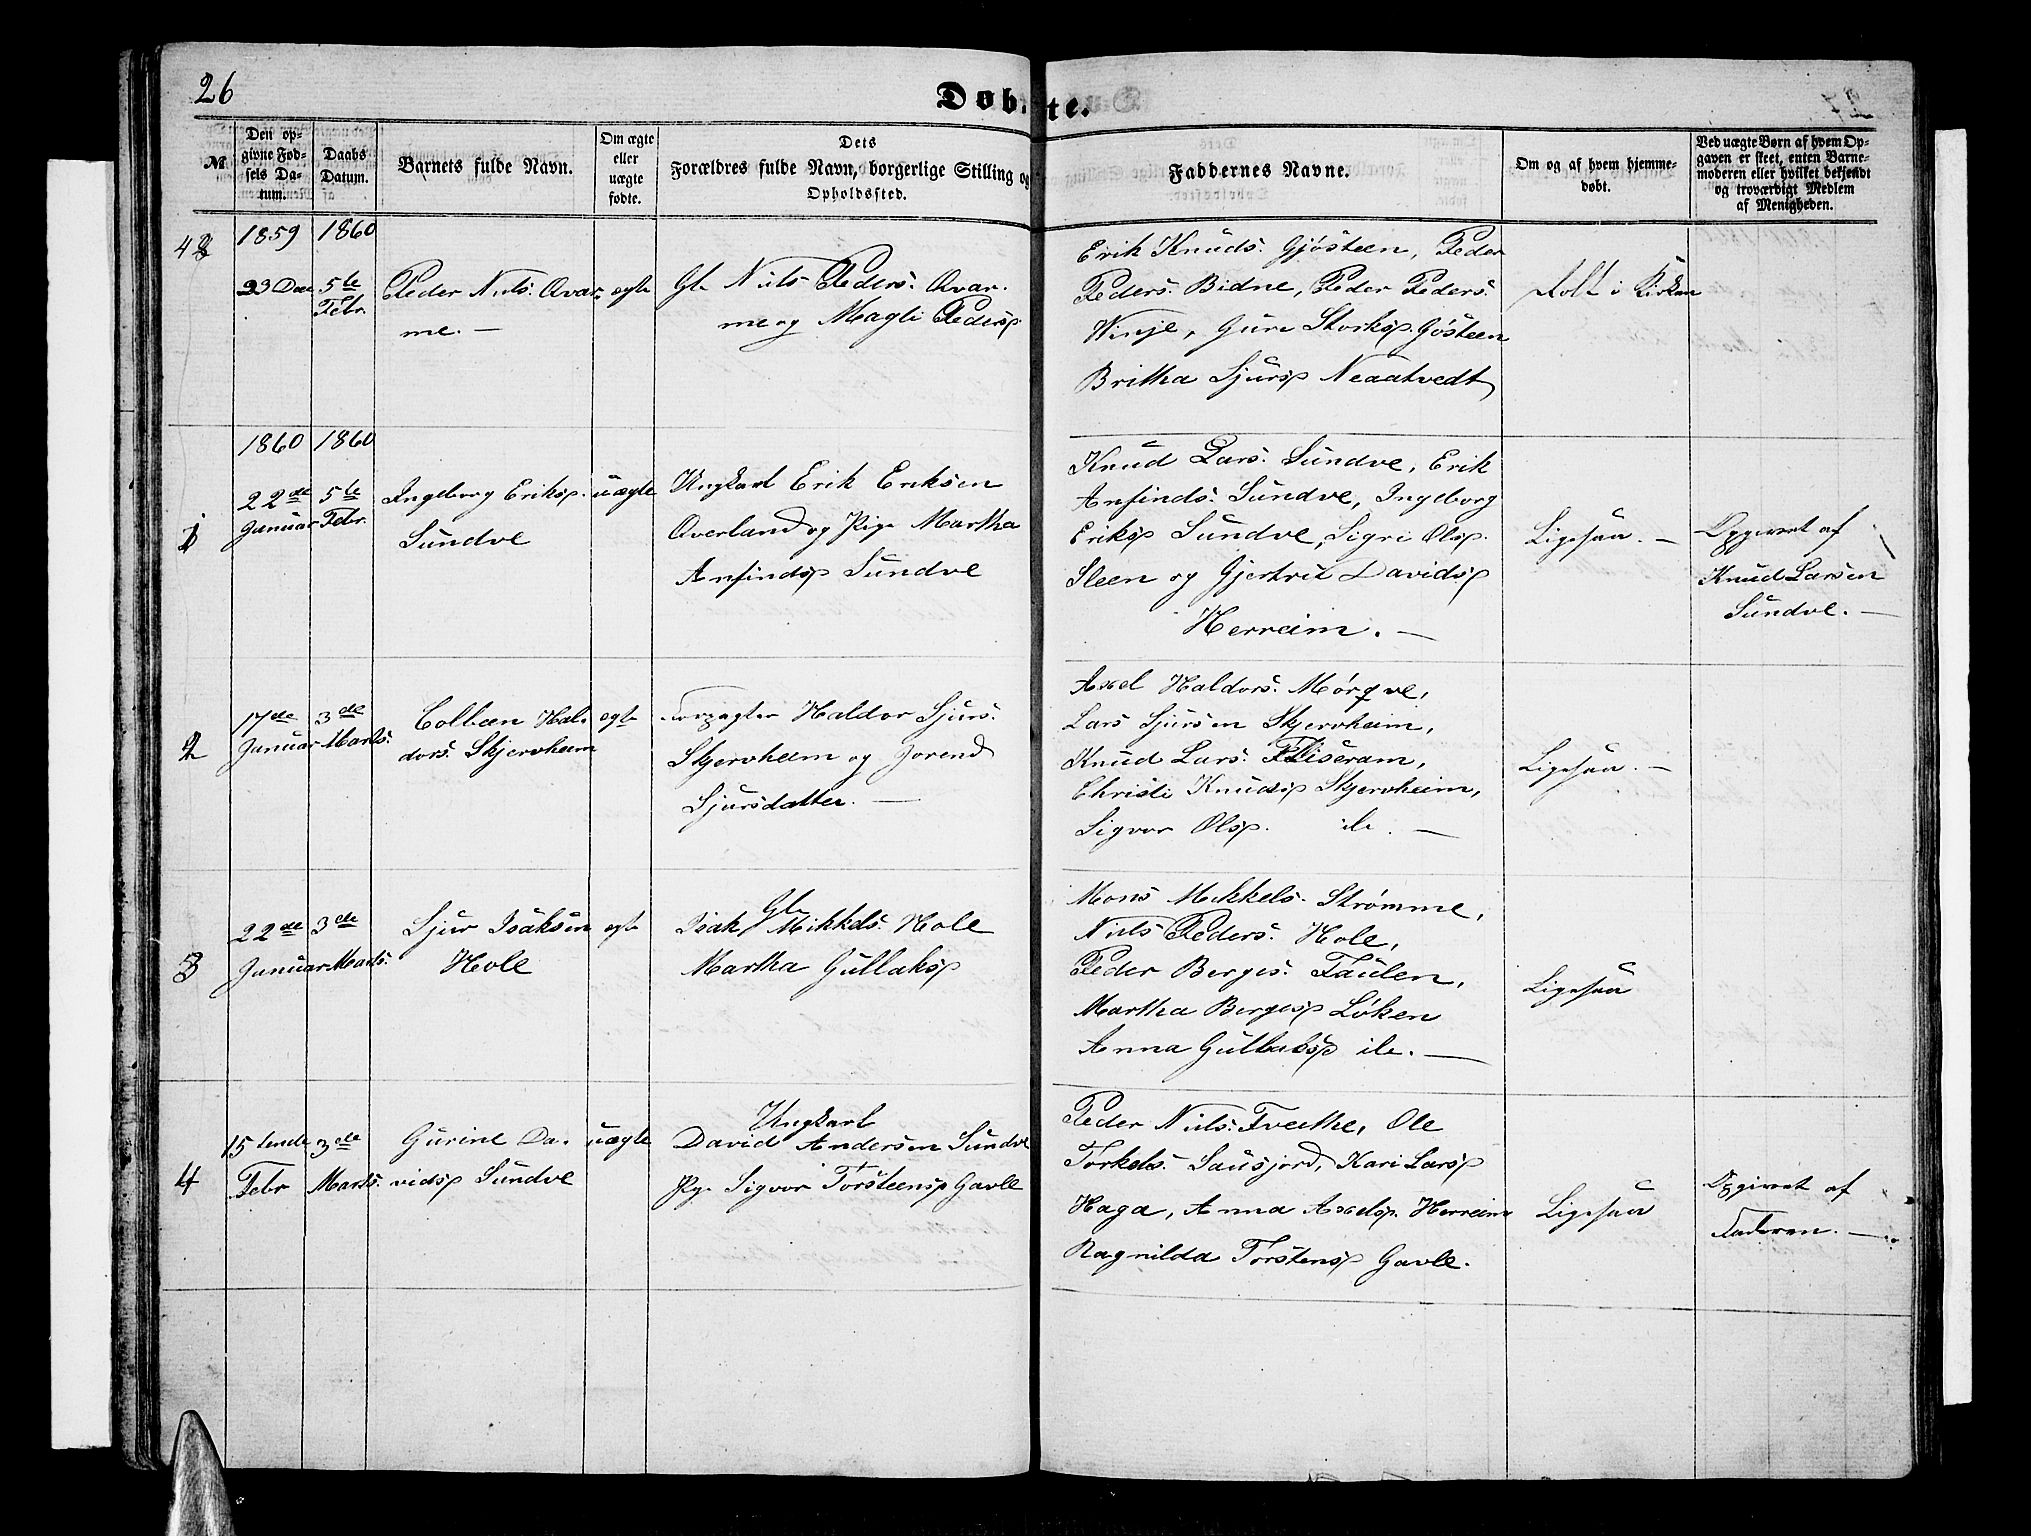 26
Døbte.
№
Den op-
givne Fød-
sels Da-
tum.
Daabs
Datum.
Barnets fulde Navn.
Om ægte
eller
uægte
fødte.
Dets
Forældres fulde Navn, borgerlige Stilling og
Opholdssted.
Faddernes Navne.
Om og af hvem hjemme-
døbt.
Ved uægte Børn af hvem Op-
gaven er skeet, enten Barne-
moderen eller hvilket bekjendt
og troværdigt Medlem
af Menigheden.
48
1859
23 Dec
1860
5te
Febr.
Peder Niels: Qvar-
me. —
egte
Gb Niels Peders: Qvar.
me og Magli Pedersp
Erik Knuds: Gjøsteen, Peder
Peders: Bidne, Peder Peders:
Winje, Guro Storksp. Gjøsteen
Britha Sjursp Neaatvedt
Døbt i Kirken
1
1860
22de
Januar
1860
5te
Febr.
Ingeborg Eriksp.
Sundve
uægte
Ungkarl Erik Eriksen
Qverland og Pige Martha
Anfindsp Sundve
Knud Lars: Sundve, Erik
Anfinds: Sundve, Ingeborg
Eriksp Sundve, Sigri Olsp.
Steen og Gjertrit Davidsp
Herreim. —
Ligesaa. —
Opgivet af
Knud Larsen
Sundve. —
2
17de
Januar
3de
Marts.
Colben Hal-
dors: Skjervheim
egte
Forpagter Haldor Sjurs:
Skjervheim og Jorend
Sjursdatter. —
Axel Haldors: Mørqve,
Lars Sjursen Skjervheim,
Knud Lars: Fliseram,
Christi Knudsp Skjervheim,
Sigvor Olsp. ib. —
Ligesaa. —
3
22de
Januar
3de
Marts.
Sjur Isaksen
Hole
egte
Gb
Isak Mikkels: Hole
Martha Gullaksp
Mons Mikkels. Strømme,
Niels Peders: Hole,
Peder Berges: Taulen,
Martha Bergesp Løken
Anna Gullaksp ib. —
Ligesaa
4
15tende
Febr
3de
Marts.
Gurine Da-
vidsp Sundve
uægte
Ungkarl
David Andersen Sundve
Pge Sigvor Torsteensp Gavle
Peder Niels: Tveithe, Ole
Torkels: Sausjord, Kari Larsp
Haga, Anna Axelsp. Herreim
Ragnilda Torstensp Gavle.
Ligesaa
Opgivet af
Faderen. —